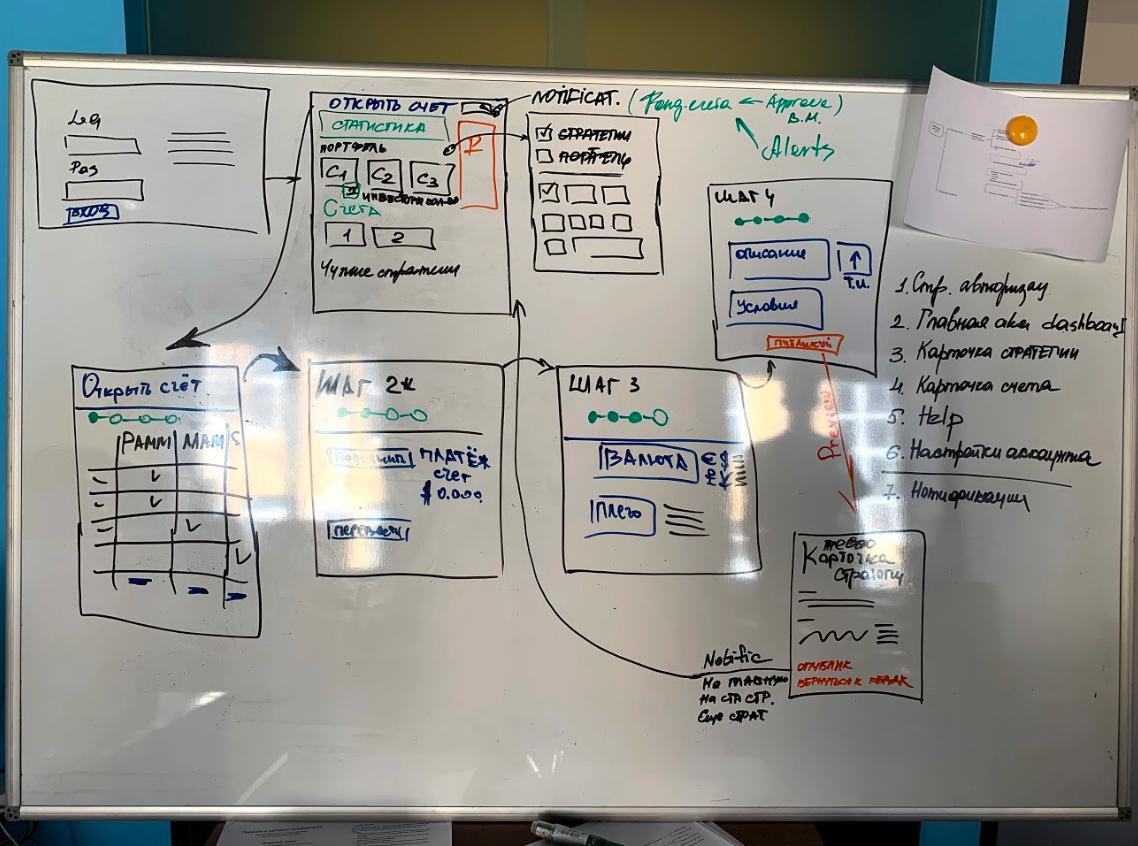 Log
Pas
ВХОД
ОТКРЫТЬ СЧЕТ
СТАТИСТИКА
ПОРТФЕЛЬ
C1 C2 C3
R
Счета
1 2
Лучшие стратегии
NOTIFICAT. ( ← Approve)
B.M.
Alerts
СТРАТЕГИИ
ПОРТФЕЛЬ
ШАГ 4
описание
Т.И.
Условия
ПУБЛИКУЙ
Preview
1. Стр. авторизац
2. Главная aka dashboard
3. Карточка СТРАТЕГИИ
4. Карточка счета
5. Help
6. Настройки аккаунта
7. Нотификации
Открыть счёт
ПАММ МАМ S
ШАГ 2*
пополнить
ПЛАТЁЖ
счет
$ 0.000
перевести
ШАГ 3
ВАЛЮТА
€ $
Плечо
превью
Карточка
Стратегии
ОПУБЛИК
ВЕРНУТЬСЯ К РЕДАК
Notific
На главную
На СТА СТР.
Еще СТРАТ